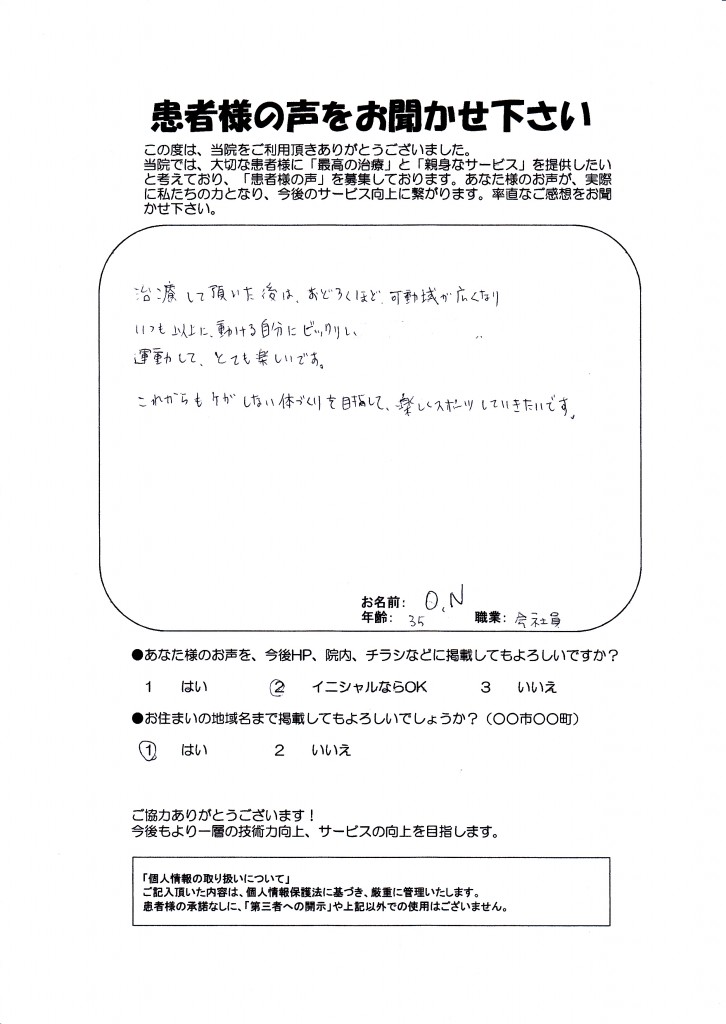 患者様の声をお聞かせ下さい
この度は、当院をご利用頂きありがとうございました。
当院では、大切な患者様に「最高の治療」と「親身なサービス」を提供したい
と考えており、「患者様の声」を募集しております。あなた様のお声が、実際
に私たちの力となり、今後のサービス向上に繋がります。率直なご感想をお聞
かせ下さい。
治療して頂いた後は、おどろくほど、可動域が広くなり
いつも以上に、動ける自分にビックリし、
運動して、とても楽しいです。
これからもケガしない体づくりを目指して、楽しくスポーツしていきたいです。
お名前: O.N
年齢: 35 職業: 会社員
●あなた様のお声を、今後HP、院内、チラシなどに掲載してもよろしいですか？
1 はい 2 イニシャルならOK 3 いいえ
●お住まいの地域名まで掲載してもよろしいでしょうか？（〇〇市〇〇町）
1 はい 2 いいえ
ご協力ありがとうございます！
今後もより一層の技術力向上、サービスの向上を目指します。
「個人情報の取り扱いについて」
ご記入頂いた内容は、個人情報保護法に基づき、厳重に管理いたします。
患者様の承諾なしに、「第三者への開示」や上記以外での使用はございません。